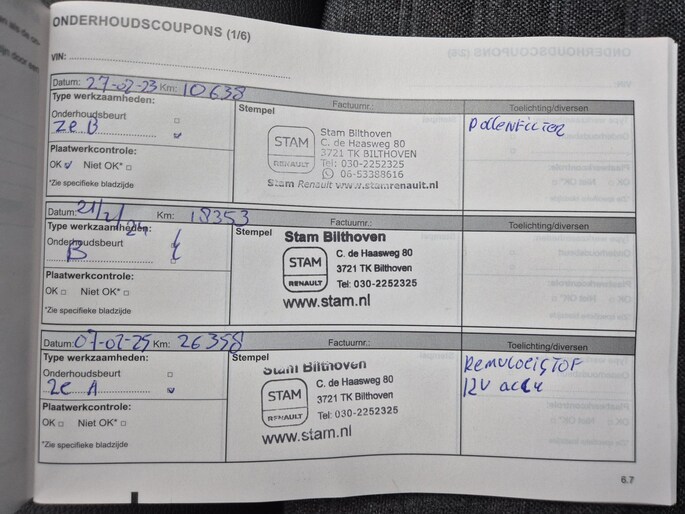 ONDERHOUDSCOUPONS (1/6)
VIN:
Datum: 27-02-23 Km: 10638
Type werkzaamheden:
Onderhoudsbeurt
ze B
Plaatwerkcontrole:
OK Niet OK*
*Zie specifieke bladzijde
Stempel Factuurnr.:
STAM
RENAULT
Stam Bilthoven
C. de Haasweg 80
3721 TK BILTHOVEN
Tel: 030-2252325
06-53388616
Stam Renault www.stamrenault.nl
Toelichting/diversen
Pollenfilter
Datum: 21/2/24 Km: 18353
Type werkzaamheden:
Onderhoudsbeurt
B
Plaatwerkcontrole:
OK Niet OK*
*Zie specifieke bladzijde
Stempel Factuurnr.:
Stam Bilthoven
STAM
RENAULT
C. de Haasweg 80
3721 TK Bilthoven
Tel: 030-2252325
www.stam.nl
Toelichting/diversen
Datum: 07-02-25 Km: 26358
Type werkzaamheden:
Onderhoudsbeurt
ze A
Plaatwerkcontrole:
OK Niet OK*
*Zie specifieke bladzijde
Stempel Factuurnr.:
Stam Bilthoven
STAM
RENAULT
C. de Haasweg 80
3721 TK Bilthoven
Tel: 030-2252325
www.stam.nl
Toelichting/diversen
Remvloeistof
12V accu
6.7